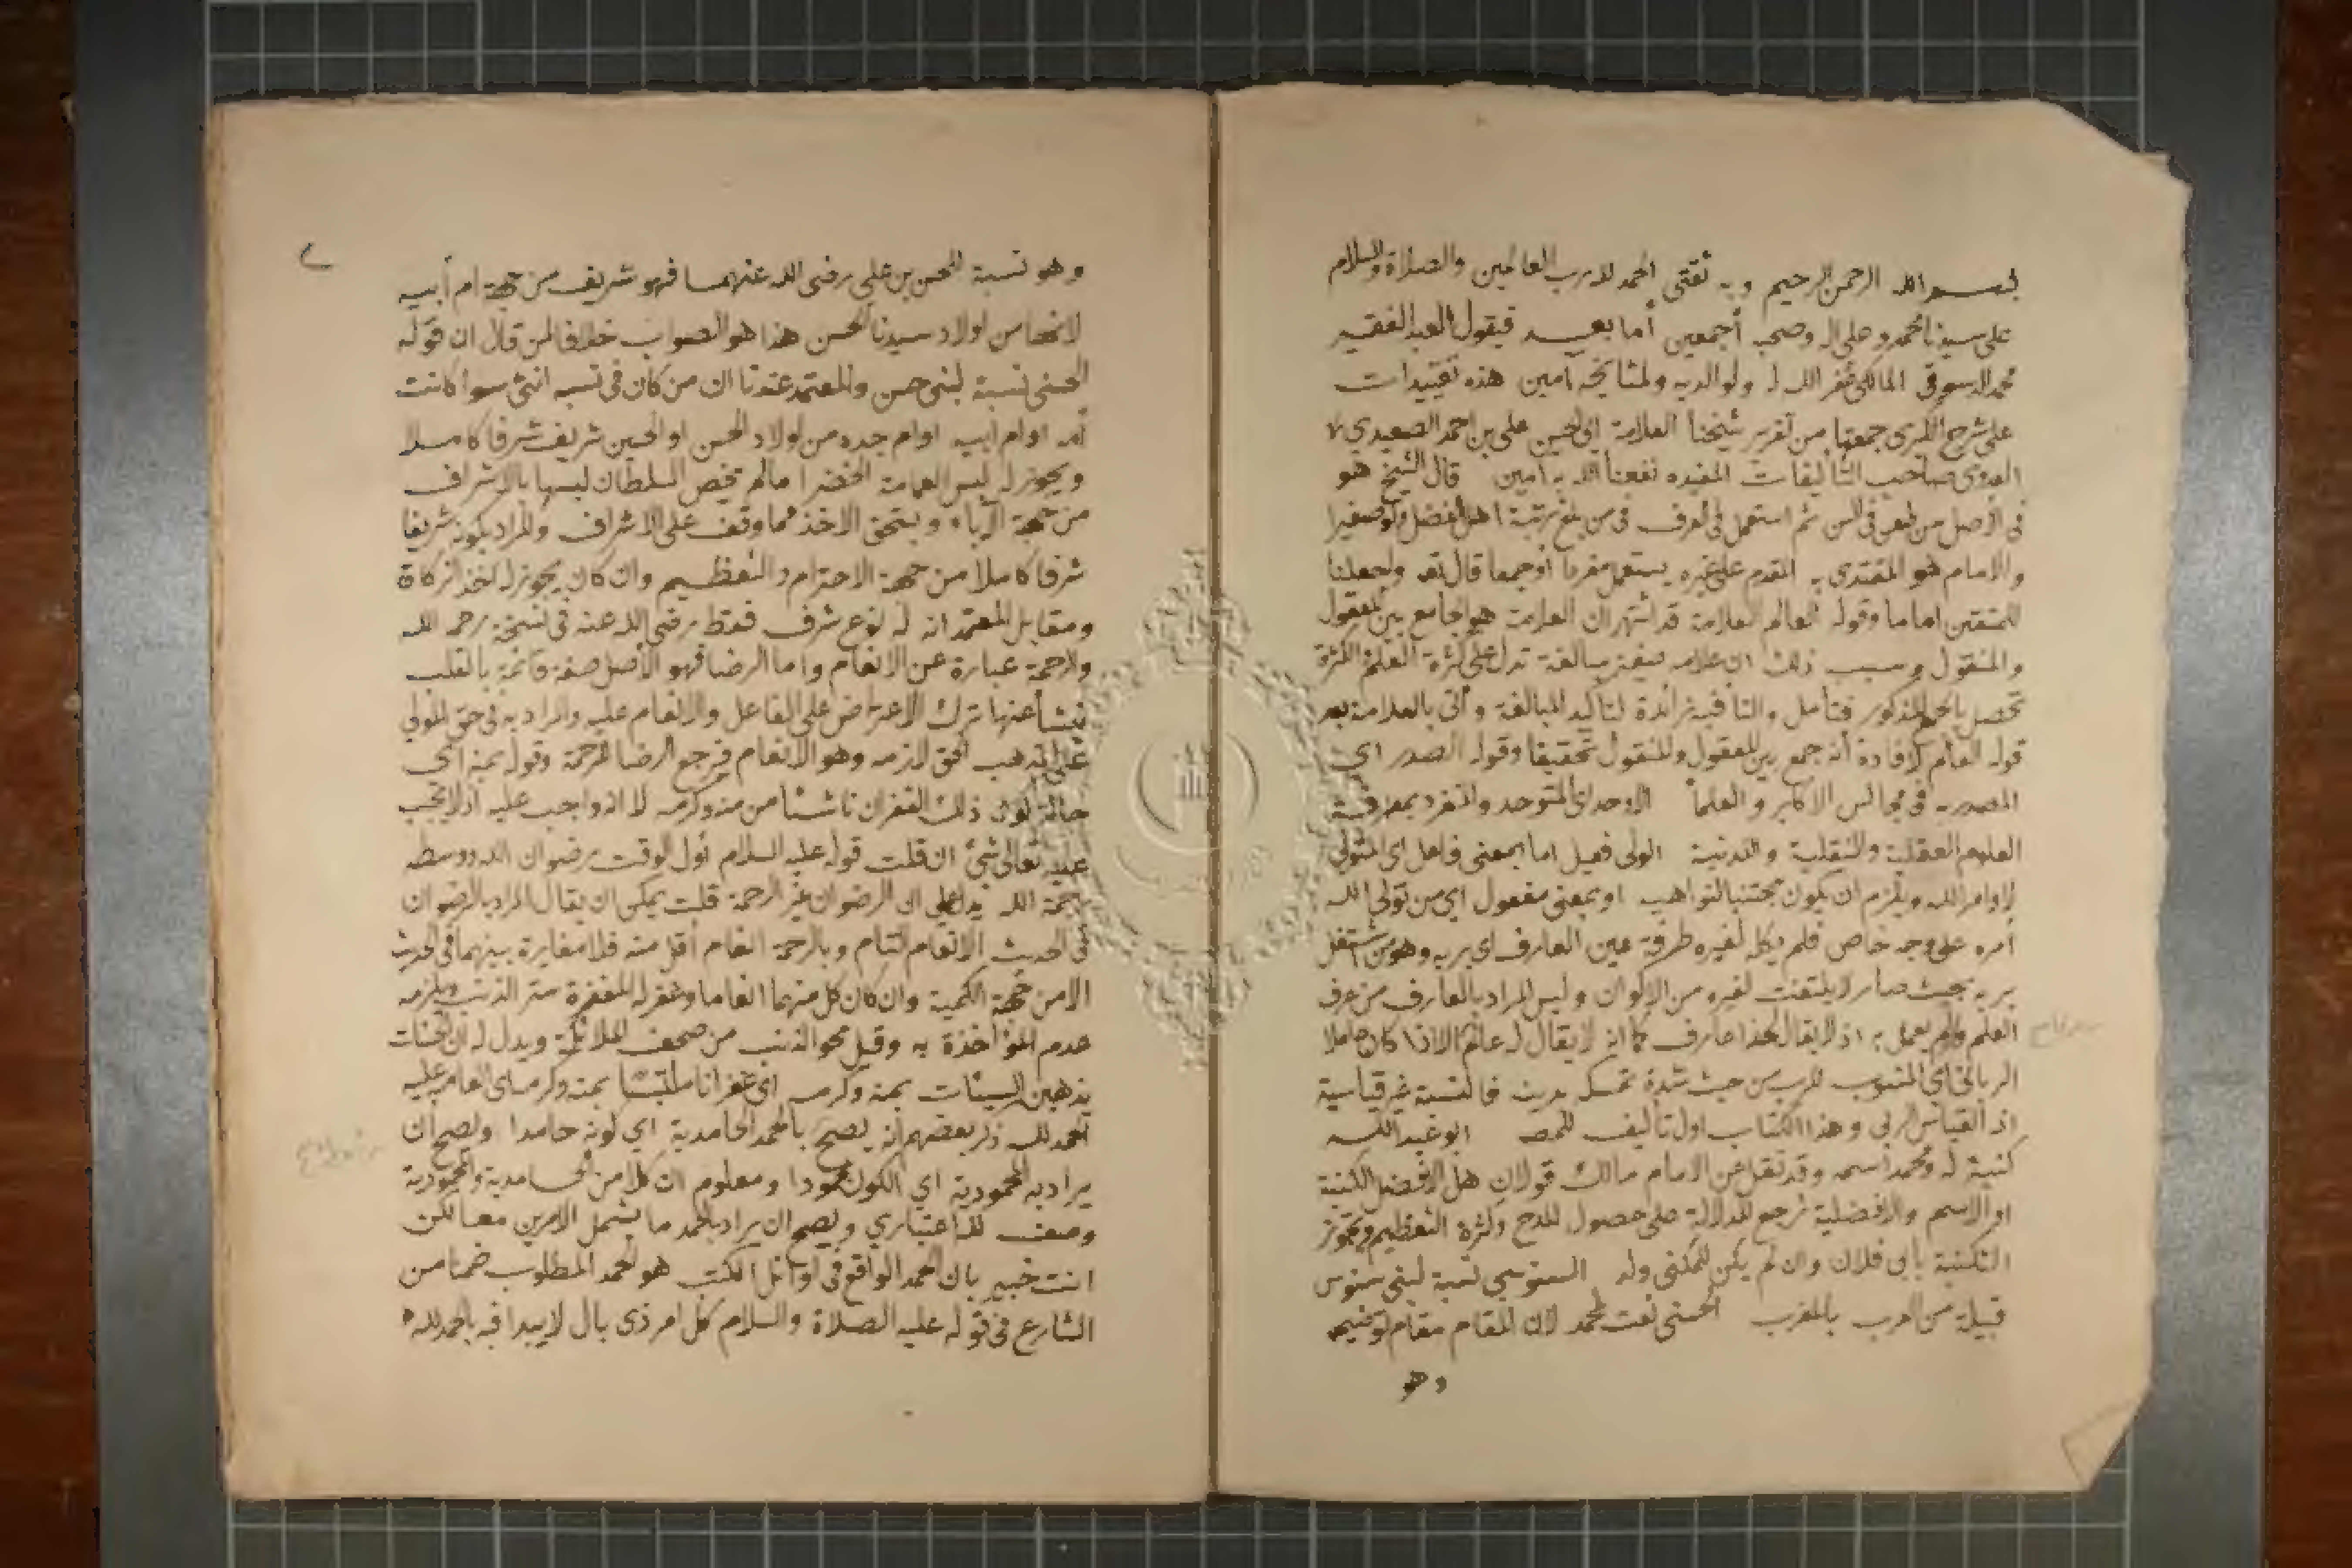 بسم الله الرحمن الرحيم وبه ثقتي الحمد لله رب العالمين والصلاة والسلام
على سيدنا محمد وعلى اله وصحبه أجمعين أما بعد فيقول العبد الفقير
محمد الدسوقي المالكي غفر الله له ولوالديه ولمشايخه امين هذه تقييدات
على شرح الكبرى جمعتها من تقرير شيخنا العلامة ابي الحسن علي بن احمد الصعيدي
العدوي صاحب التأليفات المفيده نفعنا الله به امين قال الشيخ هو
في الأصل من طعن في السن ثم استعمل في العرف في من بلغ مرتبة اهل الفضل ولو صغيرا
والامام هو المقتدى به المقدم على غيره يستعمل مفردا أو جمعا قال تعه واجعلنا
للمتقين اماما وقوله العالم العلامة قد اشتهر ان العلامة هو الجامع بين المعقول
والمنقول وسبب ذلك ان علامه صيغة مبالغة تدل على كثرة العلم والكثرة
تحصل بالجمع المذكور فتأمل والتا فيه زائدة لتاكيد المبالغة وأتى بالعلامة بعد
قوله العالم لافادة أنه جمع بين المعقول والمنقول تحقيقا وقوله الصدر اي
المصدر به في مجالس الاكابر والعلماء الاوحد اي المتوحد والمنفرد بمعرفة
العلوم العقلية والنقلية واللدنية الولي فعيل اما بمعنى فاعل اي المتولي
لاوامر الله ويلزم ان يكون مجتنبا لنواهيه او بمعنى مفعول اي من تولى الله
أمره على وجه خاص فلم يكله لغيره طرفة عين العارف اي بربه وهو من اشتغل
بربه بحيث صار لا يلتفت لغيره من الاكوان وليس المراد بالعارف من عرف
العلم ولم يعمل به اذ لا يقال لهذا عارف كما انه لا يقال له عالم الا اذا كان عاملا
الرباني اي المنسوب للرب من حيث شدة تمسكه بدينه فالنسبة غير قياسية
اذ القياس ربي وهذا الكتاب اول تأليف للمصه ابو عبد الله
كنية له ومحمد اسمه وقد نقل عن الامام مالك قولان هل الافضل الكنية
او الاسم والافضلية ترجع للدلالة على حصول المدح وكثرة التعظيم ويجوز
التكنية بابي فلان وان لم يكن للمكنى ولد السنوسي نسبة لبني سنوس
قبيلة من العرب بالمغرب الحسني نعت لمحمد لان المقام مقام توضيح
وهو
وهو نسبة للحسن بن علي رضي الله عنهما فهو شريف من جهة ام أبيه
لانها من اولاد سيدنا الحسن هذا هو الصواب خلافا لمن قال ان قوله
الحسني نسبة لبني حسن والمعتمد عندنا ان من كان في نسبه انثى سوا كانت
أمه او ام ابيه او ام جده من اولاد الحسن او الحسين شريف شرفا كاملا
ويجوز له لبس العمامة الخضرا ما لم يخص السلطان لبسها بالاشراف
من جهة الآباء ويستحق الاخذ مما وقف على الاشراف والمراد بكونه شريفا
شرفا كاملا من جهة الاحترام والتعظيم وان كان يجوز له اخذ الزكاة
ومقابل المعتمد انه له نوع شرف فقط رضي الله عنه في نسخة رحمه الله
والرحمة عبارة عن الانعام واما الرضا فهو الأصل صفة قائمة بالقلب
ينشأ عنها ترك الاعتراض على الفاعل والانعام عليه والمراد به في حق المولى
على المذهب الحق لازمه وهو الانعام فرجع الرضا للرحمة وقوله بمنه اي
حالة كون ذلك الغفران ناشئا من منه وكرمه لا انه واجب عليه اذ لا يجب
عليه تعالى شيئ ان قلت قوله عليه السلام أول الوقت رضوان الله ووسطه
رحمة الله يدل على ان الرضوان غير الرحمة قلت يمكن ان يقال المراد بالرضوان
في الحديث الانعام التام وبالرحمة انعام أقل منه فلا مغايرة بينهما في الحديث
الا من جهة الكمية وان كان كل منهما انعاما وغفر له المغفرة ستر الذنب ويلزمه
عدم المؤاخذة به وقيل محو الذنب من صحف الملائكة ويدل له ان الحسنات
يذهبن السيئات بمنه وكرمه اي غفرانا ملتبسا بمنه وكرمه
الحمد لله ذكر بعضهم انه يصح بالحمد الحامدية اي كونه حامدا ويصح ان
يراد به المحمودية اي الكون محمودا ومعلوم ان كلا من الحامدية والمحمودية
وصف لله اعتباري ويصح ان يراد بالحمد ما يشمل الامرين معا لكن
انت خبير بان الحمد الواقع في اوائل الكتب هو الحمد المطلوب ضمنا من
الشارع في قوله عليه الصلاة والسلام كل امر ذي بال لا يبدا فيه بالحمد لله